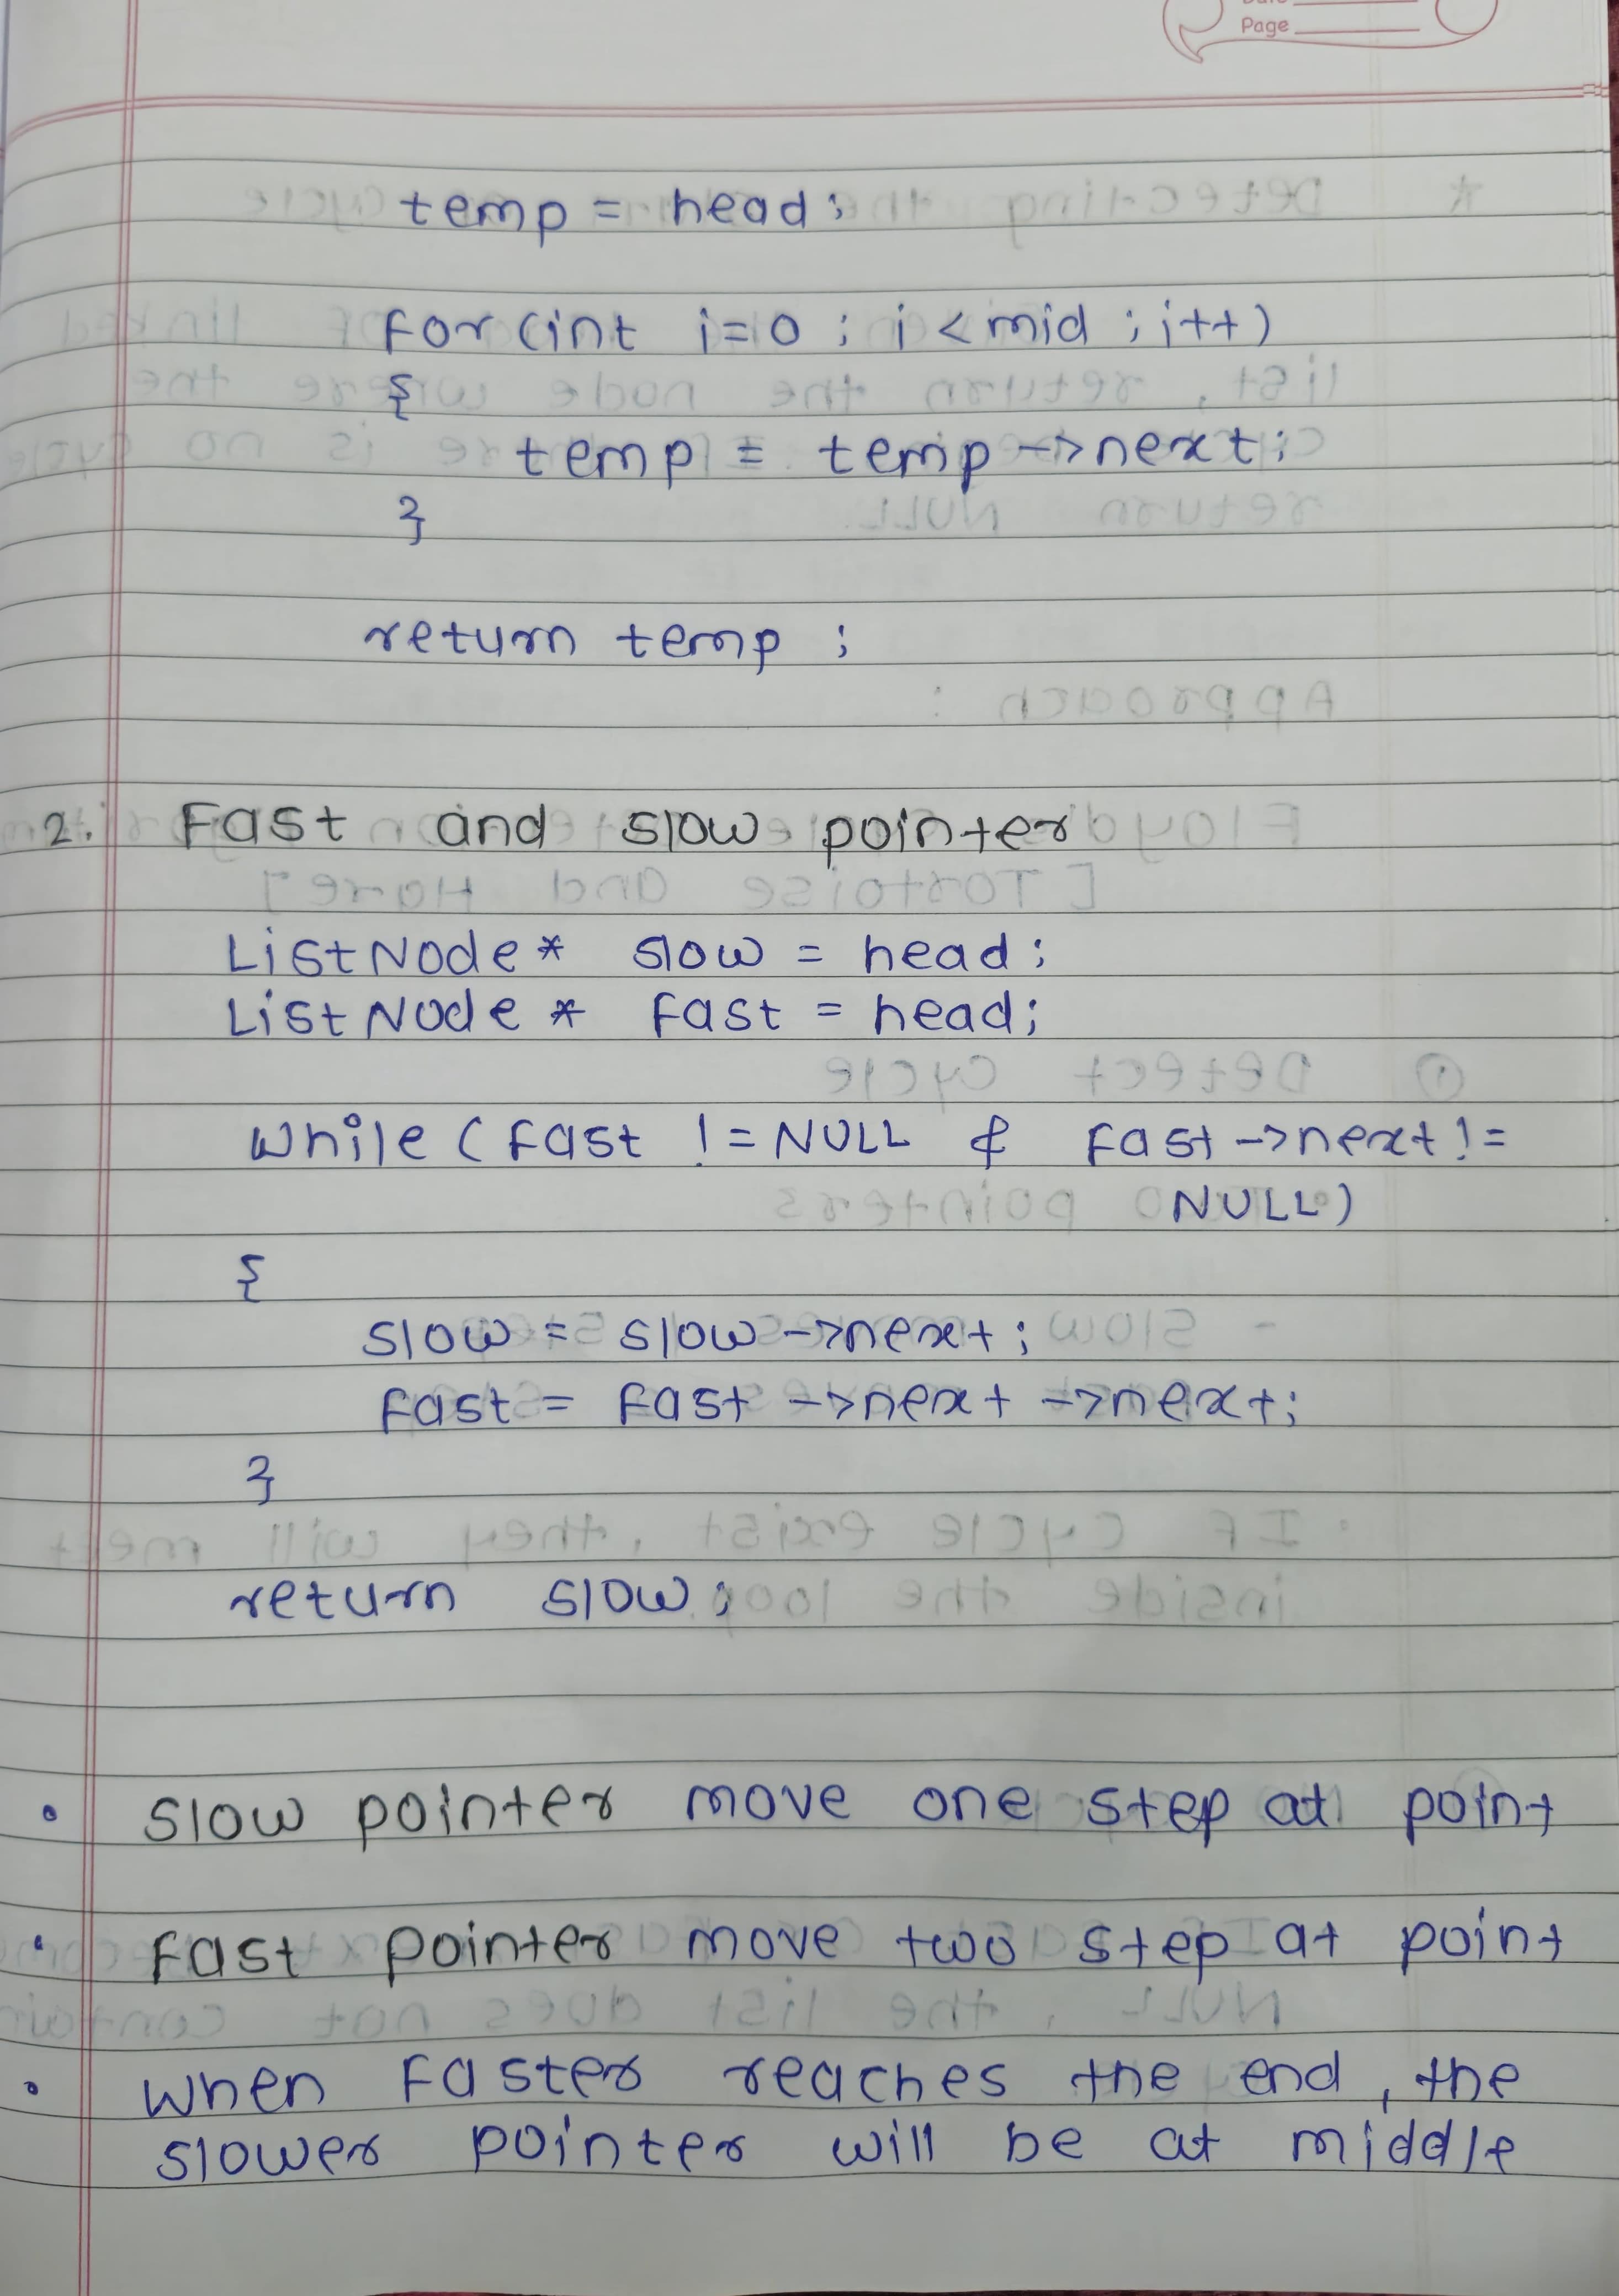 Page
temp = head;
for(int i=0 ; i < mid ; i++)
{
temp = temp->next;
}
return temp ;
2. Fast and slow pointer
ListNode* slow = head;
ListNode* fast = head;
while (fast != NULL & fast->next !=
NULL)
{
slow = slow->next;
fast = fast->next->next;
}
return slow;
• slow pointer move one step at point
• Fast pointer move two step at point
• when faster reaches the end, the
slower pointer will be at middle